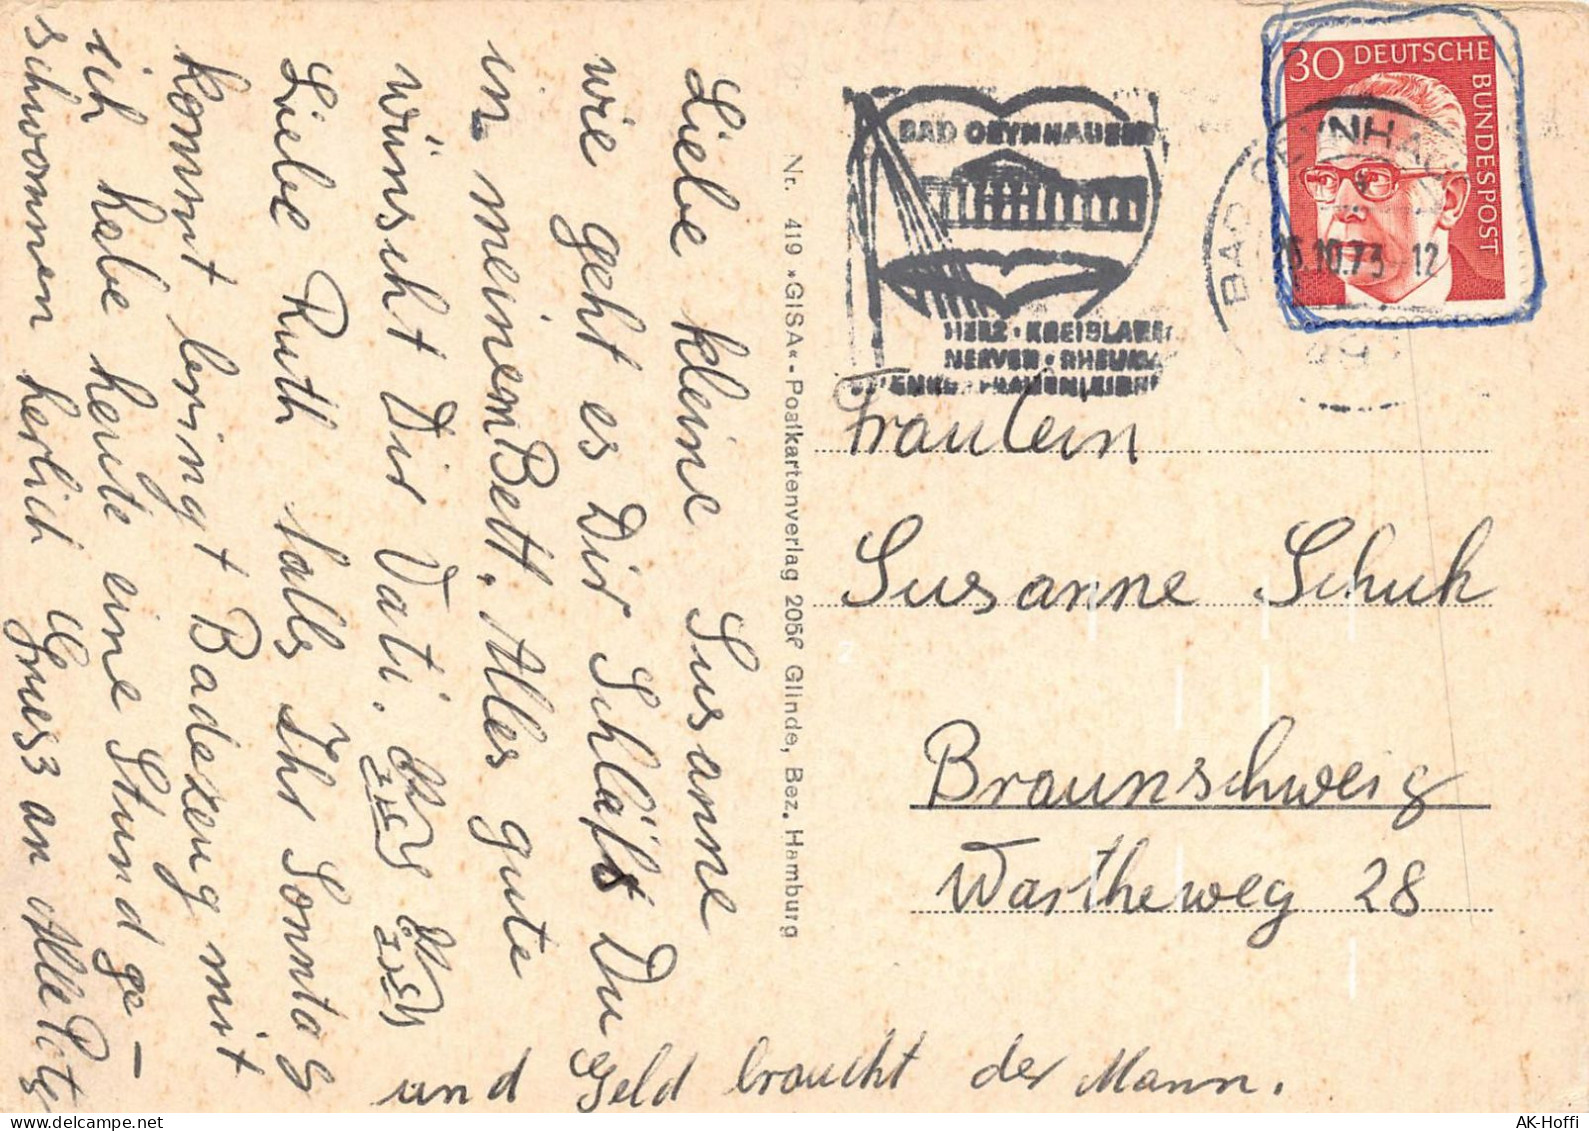 Liebe kleine Susanne
wie geht es Dir Schläfst Du
in meinem Bett. Alles gute
wünscht Dir Vati.
Liebe Ruth falls Ihr Sonntag
kommt bringt Badezeug mit
ich habe heute eine Stund ge-
schwommen herlich Gruess an Alle
und Geld braucht der Mann.
Nr. 419 »GISA« - Postkartenverlag 2056 Glinde, Bez. Hamburg
BAD OEYNHAUSEN
HERZ · KREISLAUF
NERVEN · RHEUMA
FRAUENLEIDEN
30 DEUTSCHE BUNDESPOST
BAD OEYNHAUSEN
10.73-12
Fräulein
Susanne Schuk
Braunschweig
Wartheweg 28
AK-Hoffi